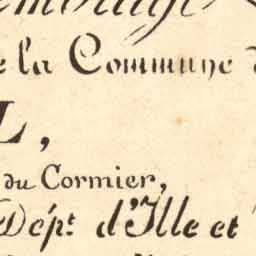 e la Commune
L,
du Cormier,
Dép.t d'Ille et